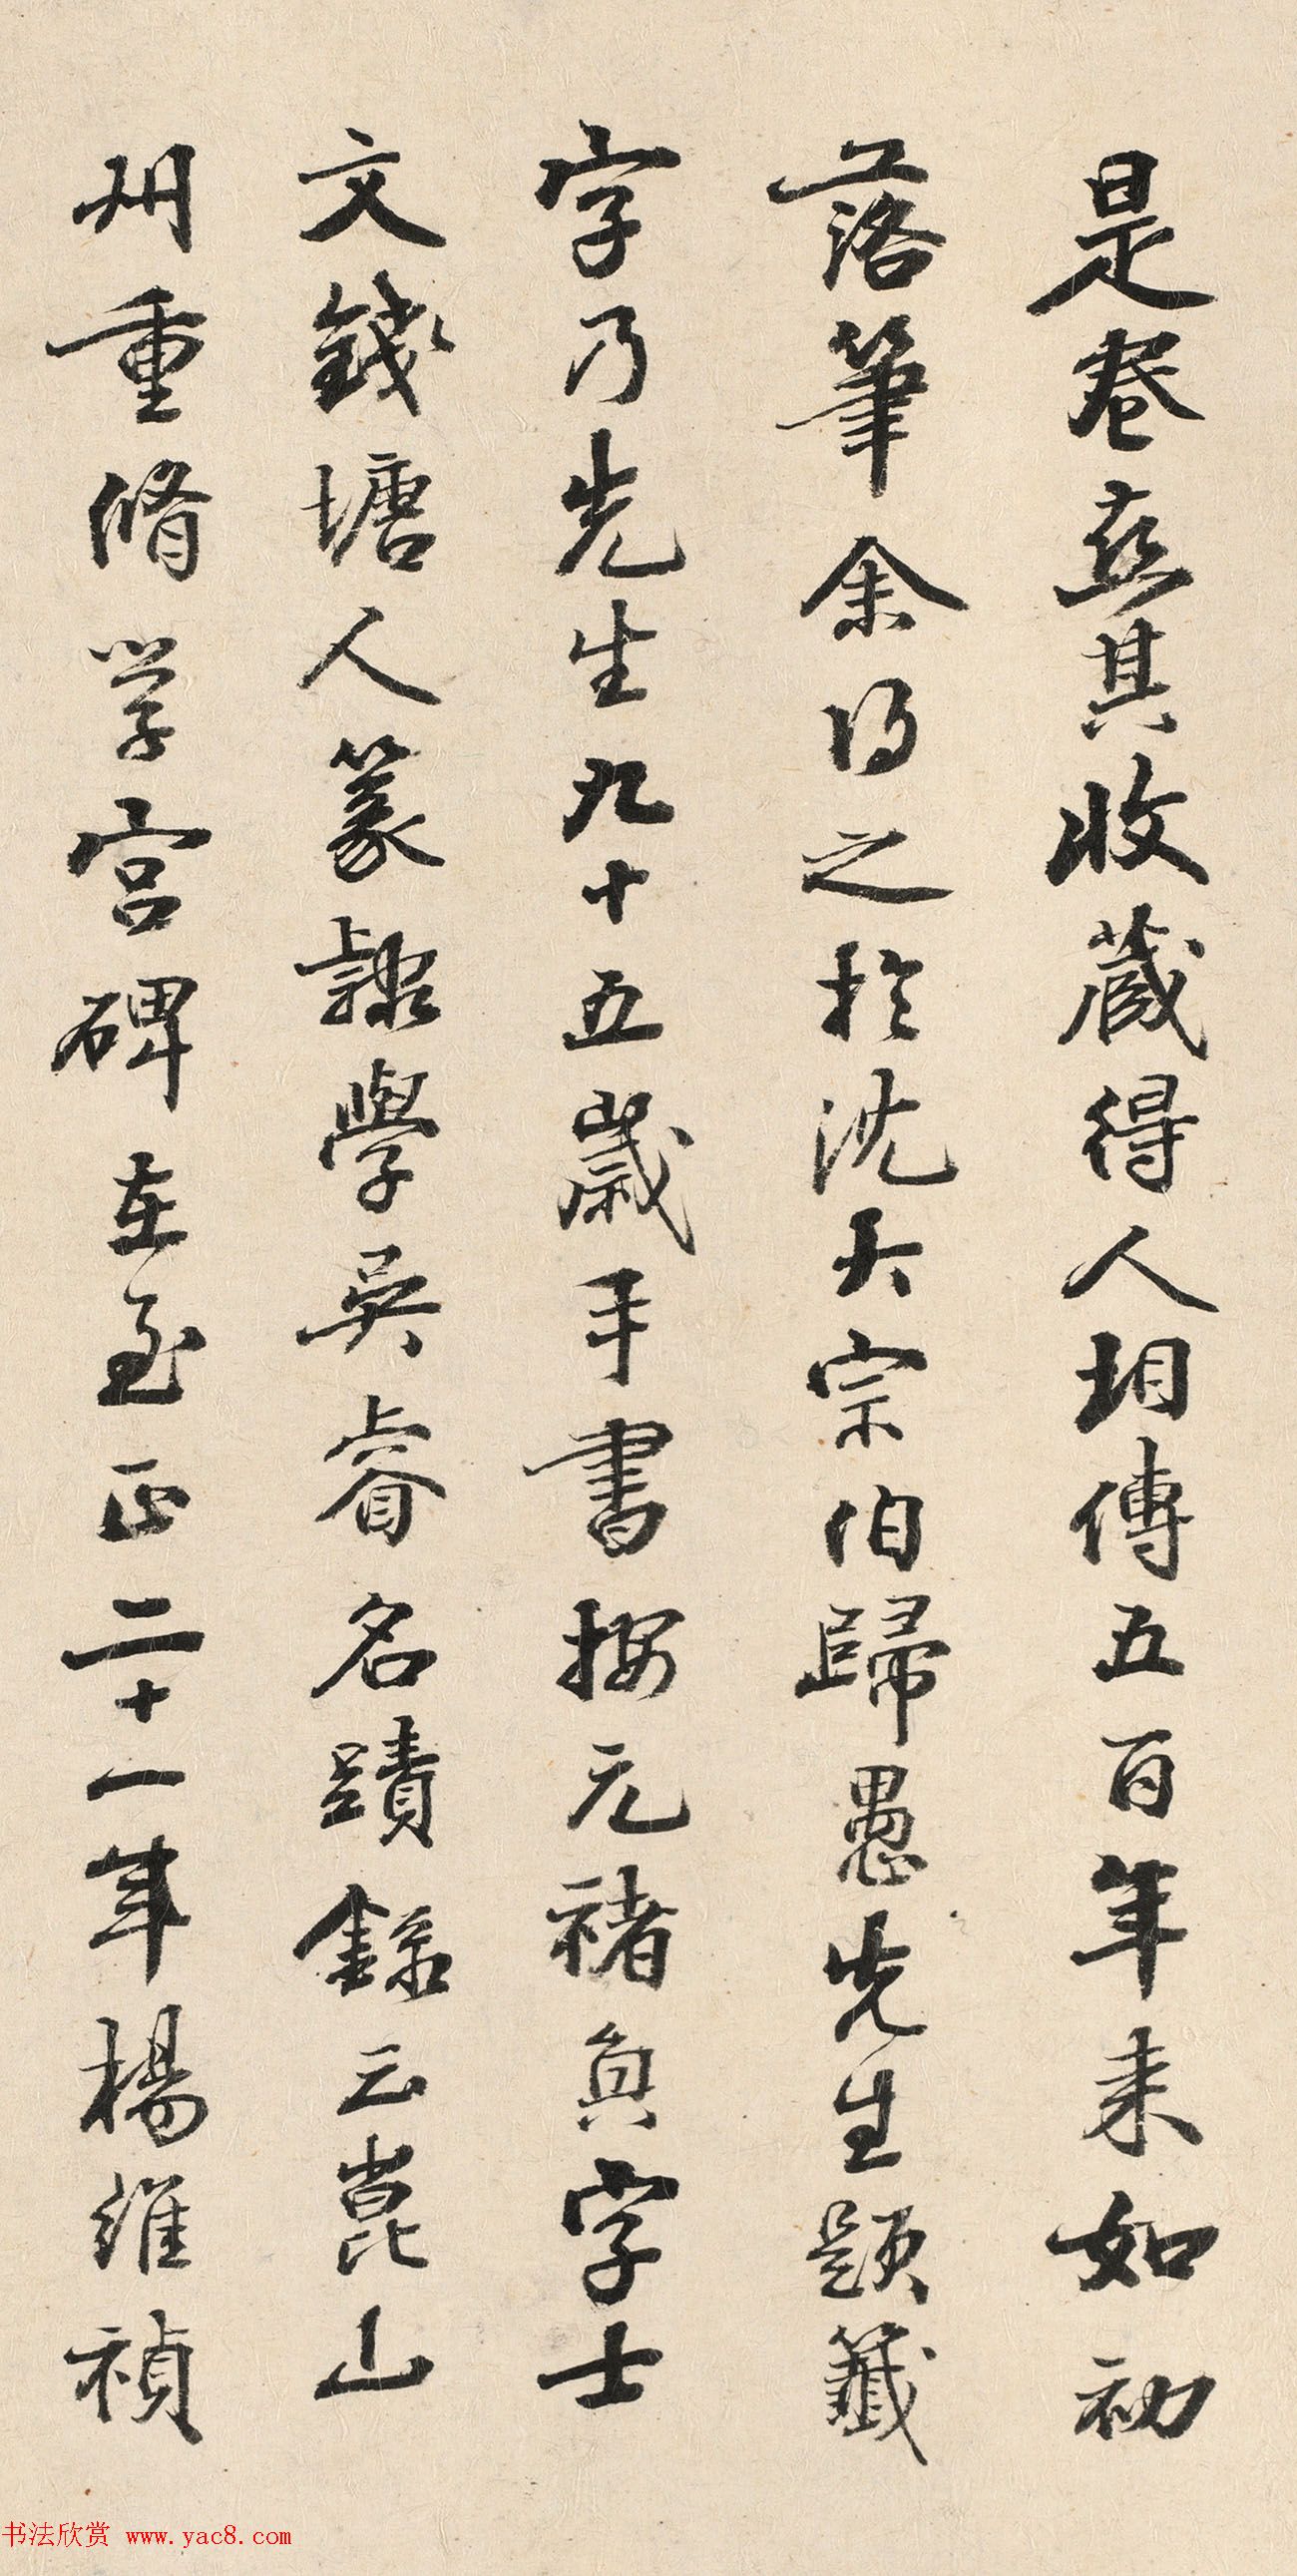 是卷並其收藏得人相傳五百年来如初
落筆余得之於沈大宗伯歸愚先生題籤
字乃先生九十五歲手書按元褚奐字士
文錢塘人篆隸學吳睿名蹟錄云崑山
州重脩学宮碑在至正二十一年楊維禎
书法欣赏 www.yac8.com